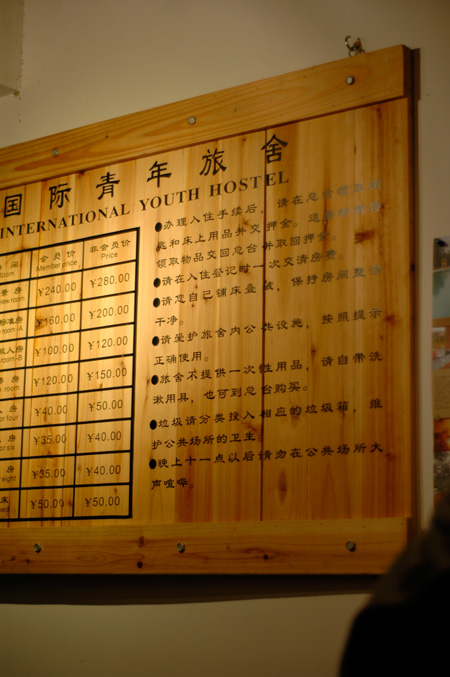 国际青年旅舍
INTERNATIONAL YOUTH HOSTEL
会员价 非会员价
Member price Price
景房 ¥240.00 ¥280.00
view room
标准房 ¥160.00 ¥200.00
room-A
双人房 ¥100.00 ¥120.00
room-B
房 ¥120.00 ¥150.00
room
人房 ¥40.00 ¥50.00
for four
房 ¥35.00 ¥40.00
房 ¥35.00 ¥40.00
eight
床 ¥50.00 ¥50.00
bed
●办理入住手续后，请在总台领取
和床上用品并交押金。退房时
领取物品交回总台并取回押金。
●请在入住登记时一次交清房费。
●请您自己铺床叠被，保持房间整洁
干净。
●请爱护旅舍内公共设施，按照提示
正确使用。
●旅舍不提供一次性用品，请自带洗
漱用具，也可到总台购买。
●垃圾请分类投入相应的垃圾箱，维
护公共场所的卫生。
●晚上十一点以后请勿在公共场所大
声喧哗。